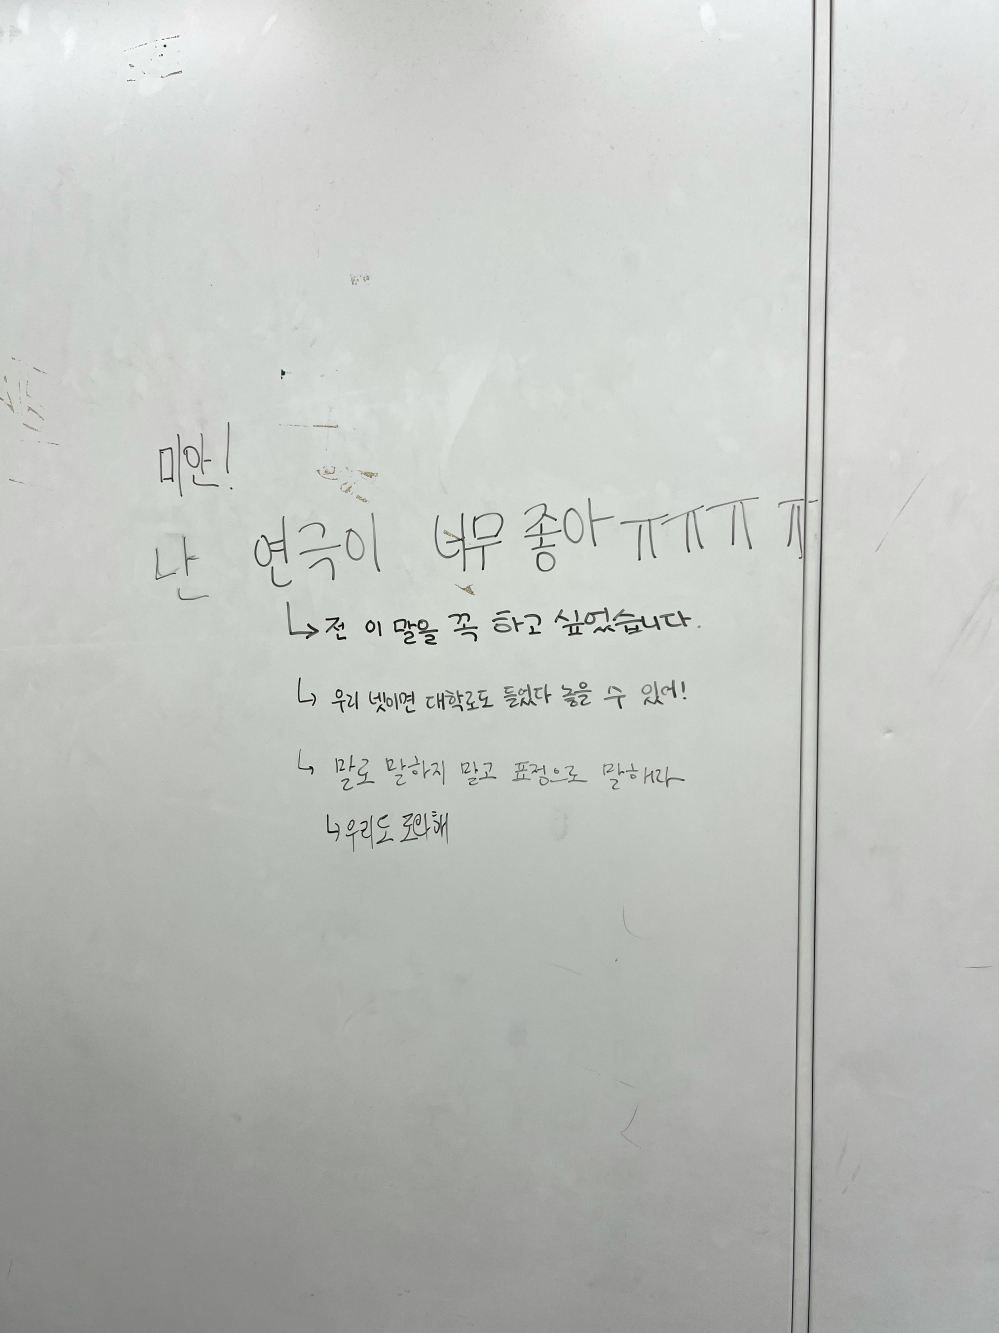 미안!
난 연극이 너무 좋아 ㅠㅠㅠ ㅠ
↳ 전 이 말을 꼭 하고 싶었습니다.
↳ 우리 넷이면 대학로도 들었다 놓을 수 있어!
↳ 말로 말하지 말고 표정으로 말해라
↳ 우리도